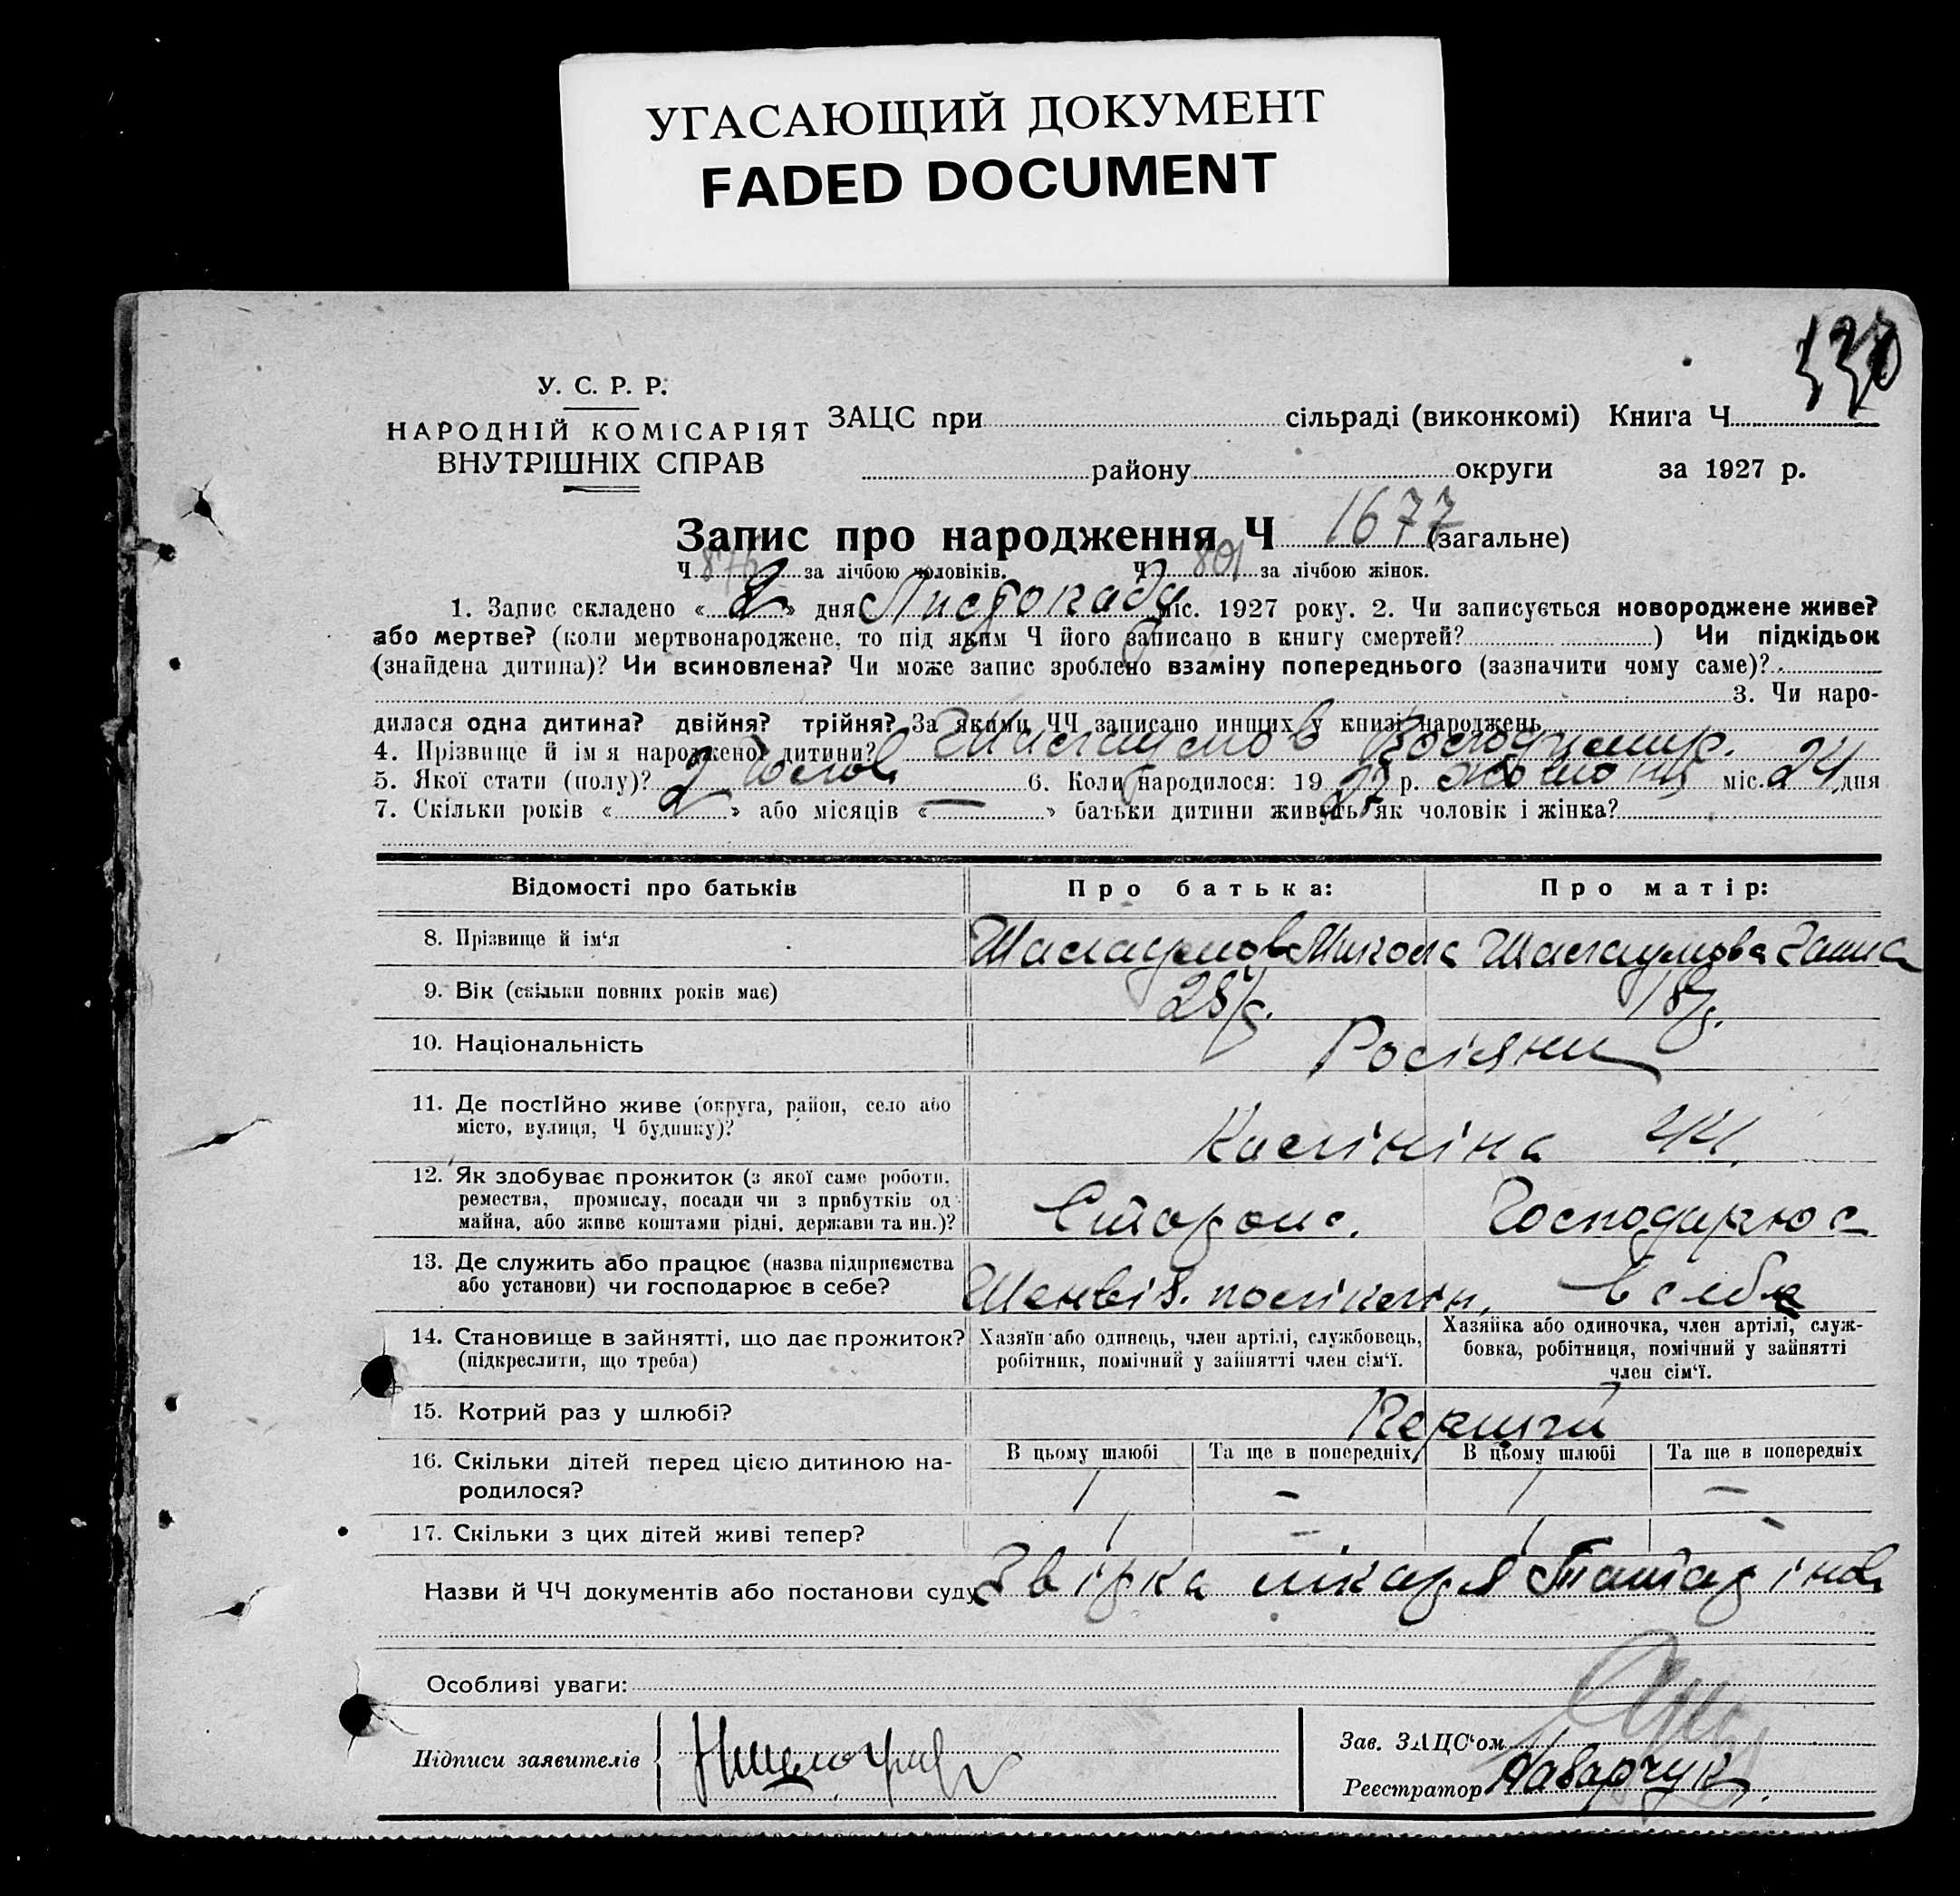 УГАСАЮЩИЙ ДОКУМЕНТ
FADED DOCUMENT
330
У. С. Р. Р.
НАРОДНІЙ КОМІСАРІЯТ
ВНУТРІШНІХ СПРАВ
ЗАЦС при сільраді (виконкомі) Книга Ч
району округи за 1927 р.
Запис про народження Ч 1677 (загальне)
Ч 876 за лічбою чоловіків. Ч 801 за лічбою жінок.
1. Запис складено « 2 » дня Листопада міс. 1927 року. 2. Чи записується новороджене живе?
або мертве? (коли мертвонароджене, то під яким Ч його записано в книгу смертей? ) Чи підкідьок
(знайдена дитина)? Чи всиновлена? Чи може запис зроблено взаміну попереднього (зазначити чому саме)?
3. Чи наро-
дилася одна дитина? двійня? трійня? За якими ЧЧ записано инших у книзі народжень
4. Прізвище й ім я народженої дитини? Володимир.
5. Якої стати (полу)? 6. Коли народилося: 19 27 р. жовтня міс. 24 дня
7. Скільки років « 2 » або місяців « — » батьки дитини живуть як чоловік і жінка?
Відомості про батьків Про батька: Про матір:
8. Прізвище й ім'я Микола
9. Вік (скільки повних років має) 28 р. 18 р.
10. Національність Росіяни
11. Де постійно живе (округа, район, село або
місто, вулиця, Ч будинку)? Калініна 44.
12. Як здобуває прожиток (з якої саме роботи,
ремества, промислу, посади чи з прибутків од
майна, або живе коштами рідні, держави та ин.)? Сторож. Господарює
13. Де служить або працює (назва підприємства
або установи) чи господарює в себе? поліклін. в себе
14. Становище в зайнятті, що дає прожиток?
(підкреслити, що треба)
Хазяїн або одинець, член артілі, службовець,
робітник, помічний у зайнятті член сім'ї.
Хазяйка або одиночка, член артілі, служ-
бовка, робітниця, помічний у зайнятті
член сім'ї.
15. Котрий раз у шлюбі? Перший
16. Скільки дітей перед цією дитиною на-
родилося?
В цьому шлюбі Та ще в попередніх В цьому шлюбі Та ще в попередніх
1 – 1 –
17. Скільки з цих дітей живі тепер? 1 – 1 –
Назви й ЧЧ документів або постанови суду лікаря
Особливі уваги:
Підписи заявителів
Зав. ЗАЦС'ом
Реєстратор